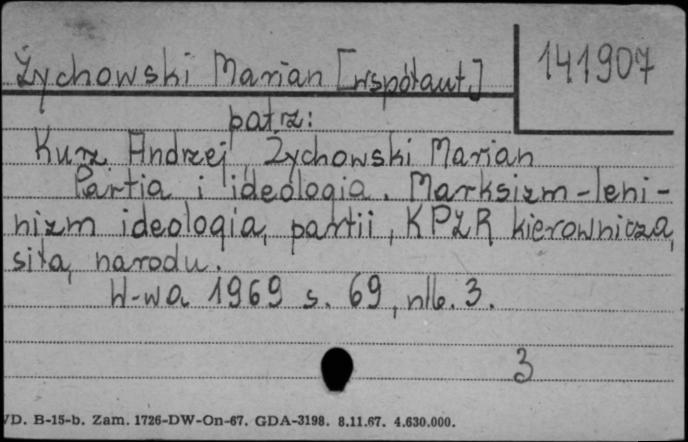 Żychowski Marian [współaut.]
141907
patrz:
Kurz Andrzej, Żychowski Marian
Partia i ideologia. Marksizm-leni-
nizm ideologią partii, KPZR kierowniczą
siłą narodu.
W-wa 1969 s. 69, nlb. 3.
3
VD. B-15-b. Zam. 1726-DW-On-67. GDA-3198. 8.11.67. 4.630.000.